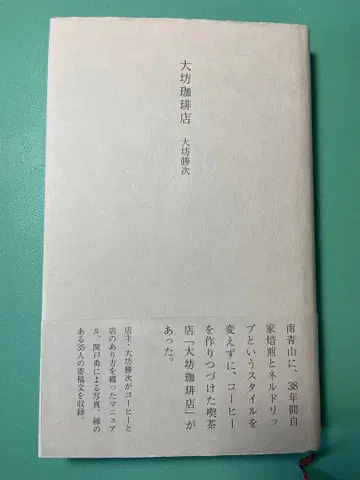 大坊珈琲店
大坊勝次
南青山に、38年間自
家焙煎とネルドリッ
プというスタイルを
変えずに、コーヒー
を作りつづけた喫茶
店「大坊珈琲店」が
あった。
店主・大坊勝次がコーヒーと
店のあり方を綴ったマニュア
ル、関戸勇による写真、縁の
ある35人の寄稿文を収録。